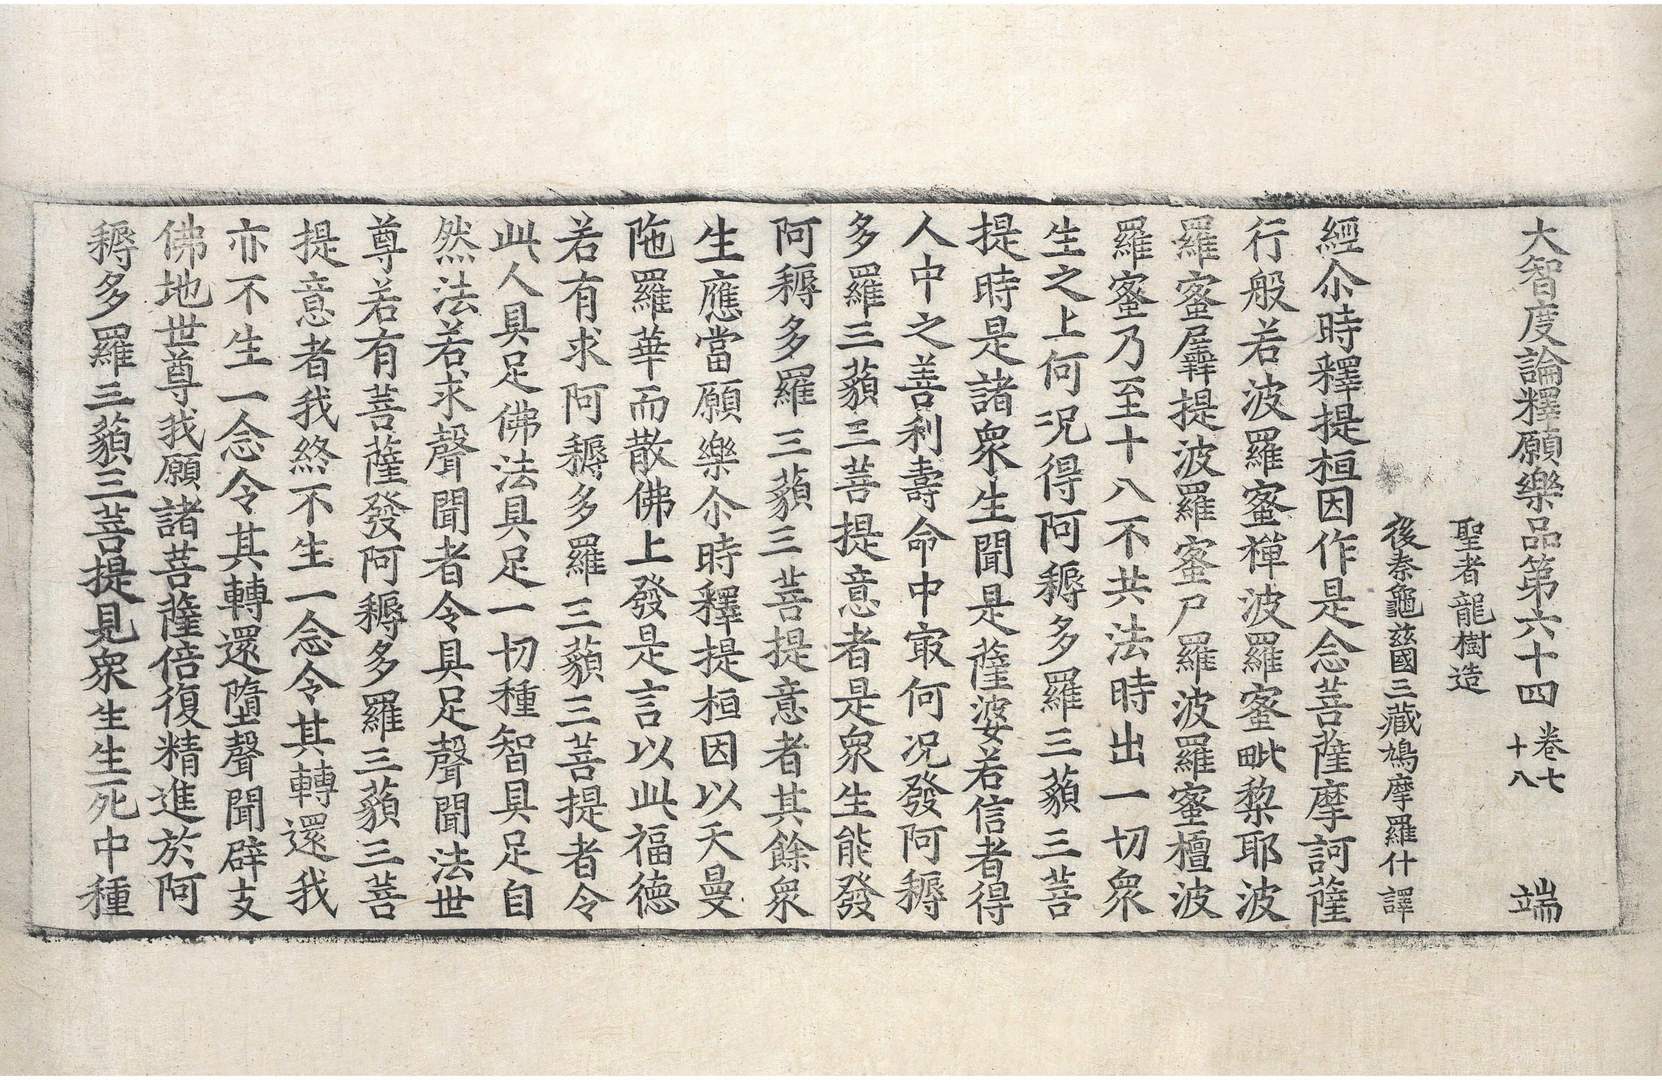 大智度論釋願樂品第六十四 卷七十八 端
聖者龍樹造
後秦龜兹國三藏鳩摩羅什譯
經尒時釋提桓因作是念菩薩摩訶薩
行般若波羅蜜禪波羅蜜毗梨耶波
羅蜜羼提波羅蜜尸羅波羅蜜檀波
羅蜜乃至十八不共法時出一切衆
生之上何况得阿耨多羅三藐三菩
提時是諸衆生聞是薩婆若信者得
人中之善利壽命中㝡何况發阿耨
多羅三藐三菩提意者是衆生能發
阿耨多羅三藐三菩提意者其餘衆
生應當願樂尒時釋提桓因以天曼
陁羅華而散佛上發是言以此福德
若有求阿耨多羅三藐三菩提者令
此人具足佛法具足一切種智具足自
然法若求聲聞者令具足聲聞法世
尊若有菩薩發阿耨多羅三藐三菩
提意者我終不生一念令其轉還我
亦不生一念令其轉還墮聲聞辟支
佛地世尊我願諸菩薩倍復精進於阿
耨多羅三藐三菩提見衆生生死中種